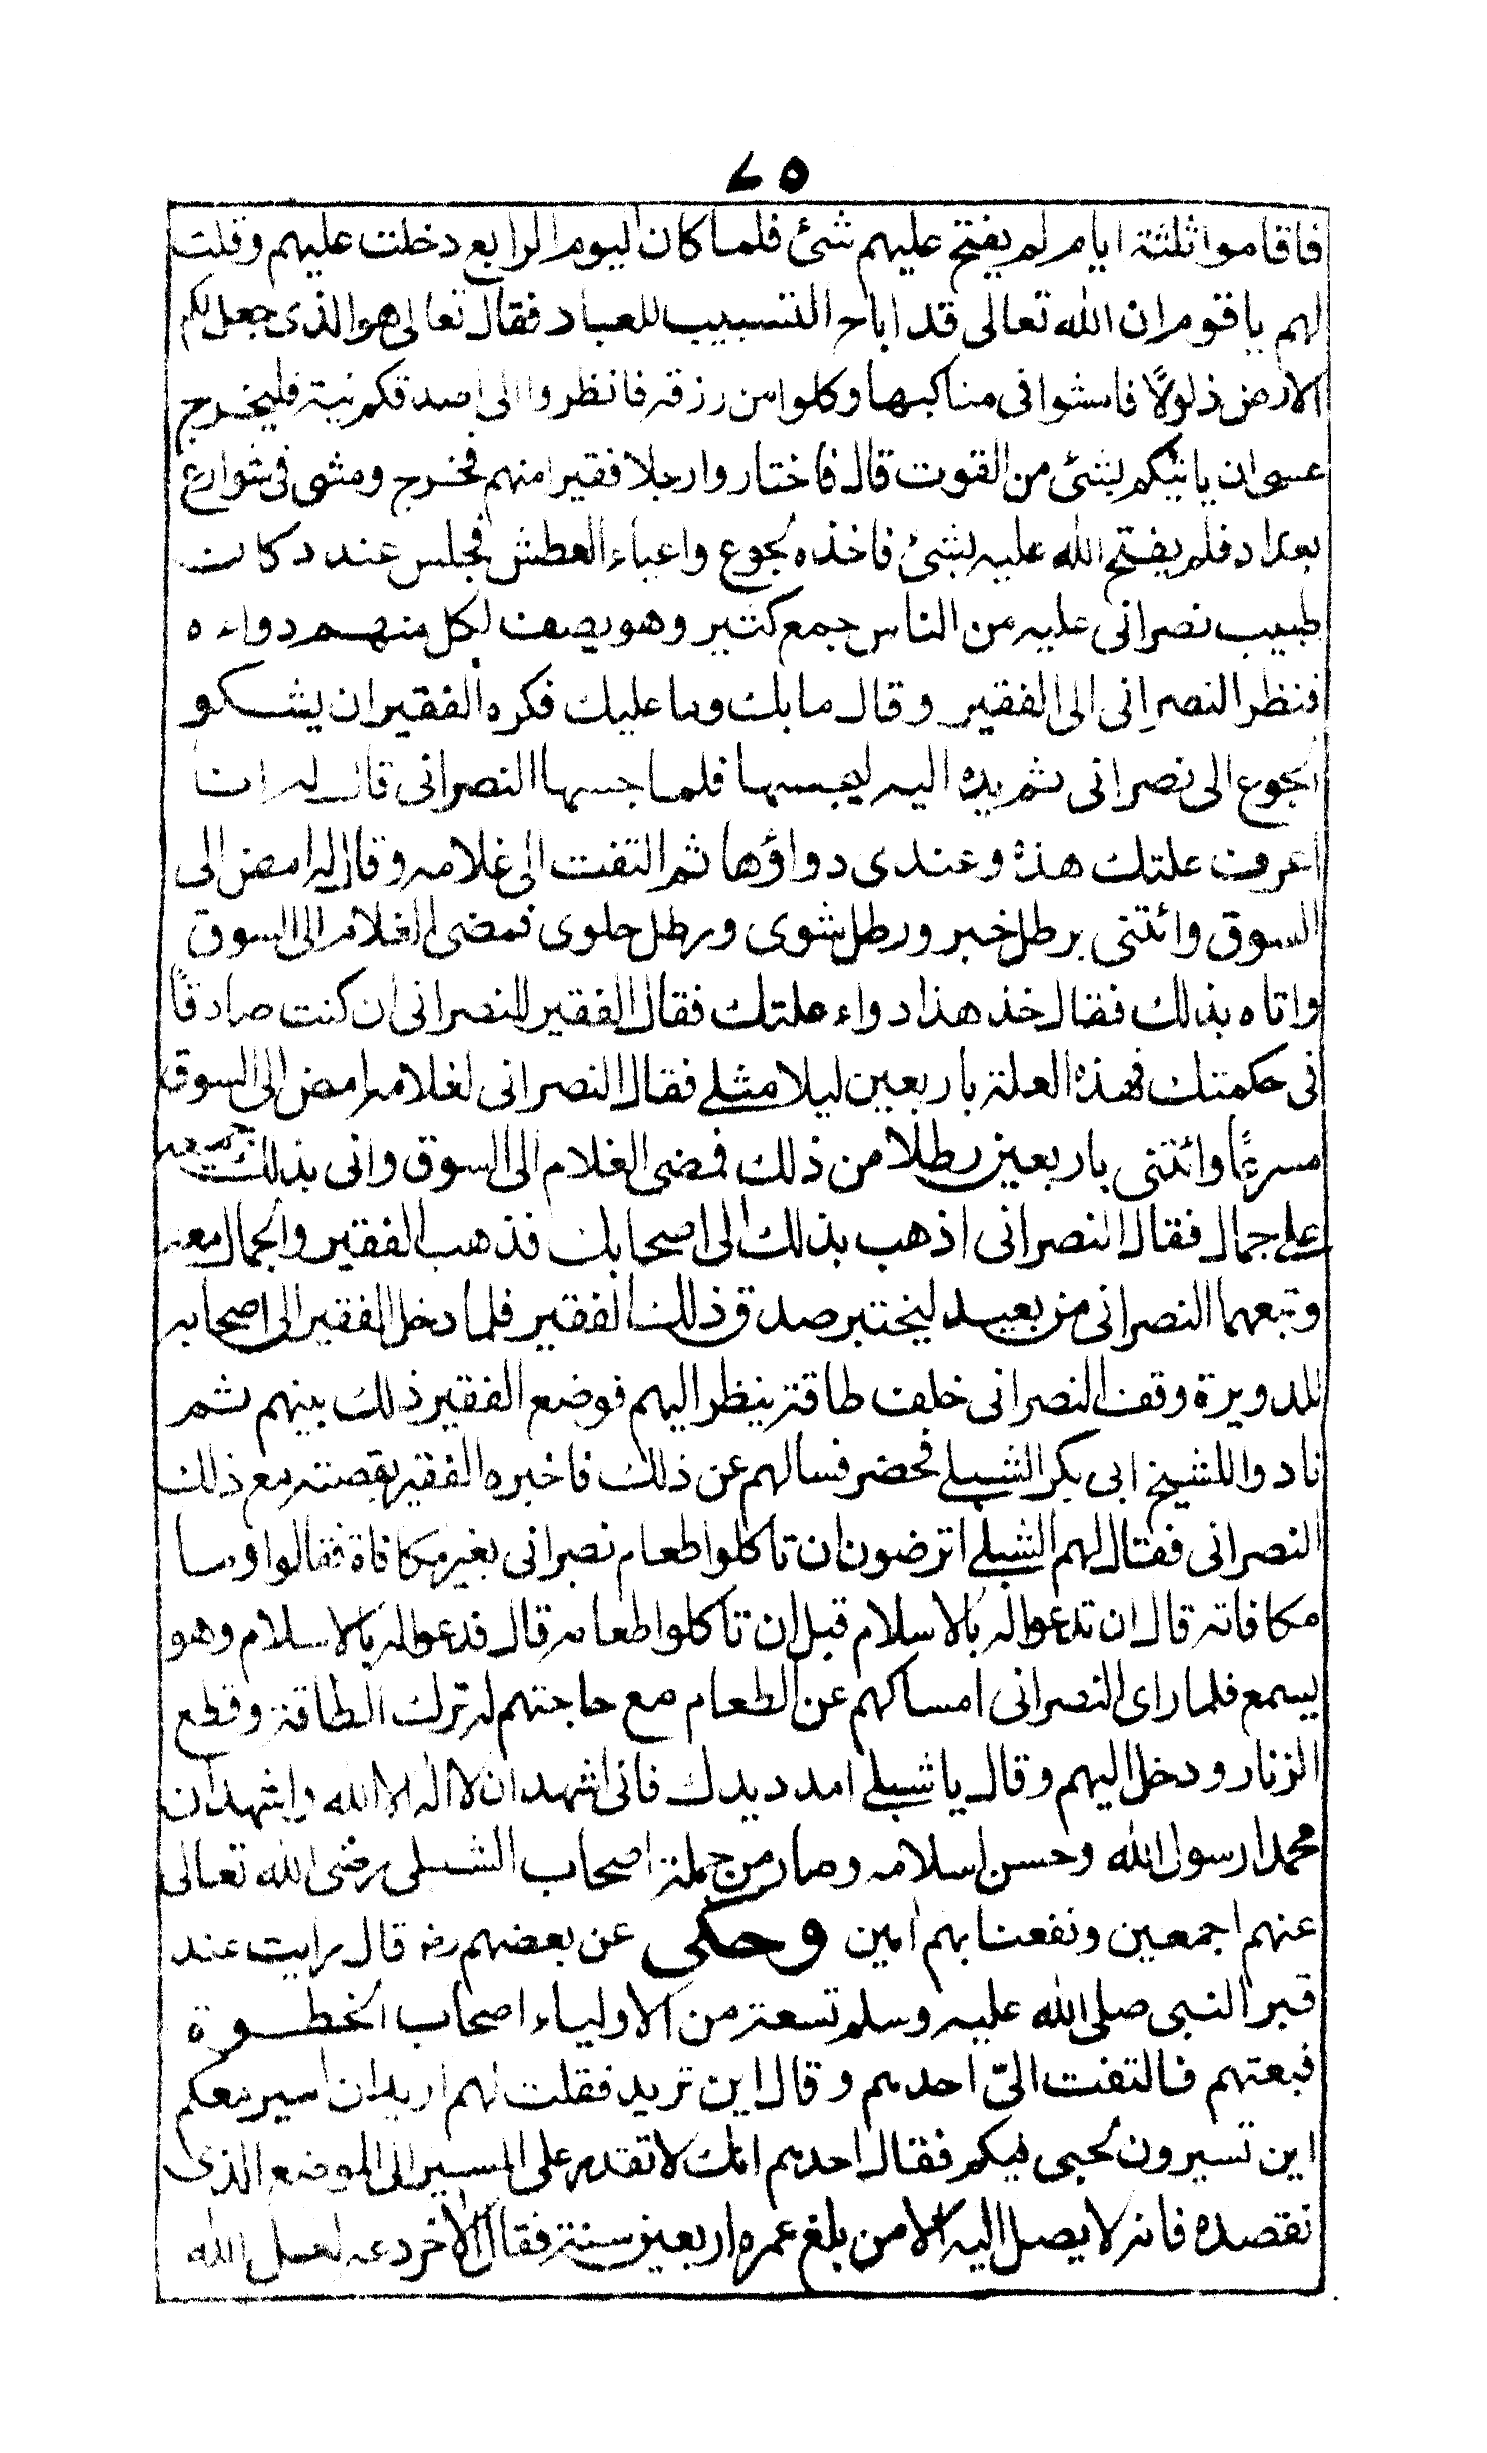 ٧٥
فاقاموا ثلثة ايام لم يفتح عليهم شئ فلما كان اليوم الرابع دخلت عليهم وقلت
لهم ياقوم ان الله تعالى قد اباح التسبيب للعباد فقال تعالى هو الذى جعل لكم
الارض ذلولاً فامشوا فى مناكبها وكلوا من رزقه فانظروا الى اصدقكم نية فليخرج
عسى ان ياتيكم بشئ من القوت قال فاختاروا رجلا فقيرا منهم فخرج ومشى فى شوارع
بغداد فلم يفتح الله عليه بشئ فاخذه الجوع واعياء العطش فجلس عند دكان
طبيب نصرانى عليه من الناس جمع كثير وهو يصف لكل منهم دواءه
فنظر النصرانى الى الفقير وقال ما بك وما عليك فكره الفقير ان يشكو
الجوع الى نصرانى ثم يده اليه ليجسها فلما جسها النصرانى قال له انا
اعرف علتك هذه وعندى دواؤها ثم التفت الى غلامه وقال له امض الى
السوق وائتنى برطل خبز ورطل شوى ورطل حلوى فمضى الغلام الى السوق
واتاه بذلك فقال خذ هذا دواء علتك فقال الفقير للنصرانى ان كنت صادقاً
فى حكمتك فهذه العلة باربعين ليلا مثلى فقال النصرانى لغلامه امض الى السوق
مسرعًا وائتنى باربعين رطلا من ذلك فمضى الغلام الى السوق واتى بذلك جميعه
على جمال فقال النصرانى اذهب بذلك الى اصحابك فذهب الفقير والجمال معه
وتبعهما النصرانى من بعيد ليختبر صدق ذلك الفقير فلما دخل الفقير الى اصحابه
للدويرة وقف النصرانى خلف طاقة ينظر اليهم فوضع الفقير ذلك بينهم ثم
نادوا للشيخ ابى بكر الشبلى فحضر فسالهم عن ذلك فاخبره الفقير بقصته مع ذلك
النصرانى فقال لهم الشبلى اترضون ان تاكلوا طعام نصرانى بغير مكافاة فقالوا وما
مكافاته قال ان تدعوا له بالاسلام قبل ان تاكلوا طعامه قال فدعوا له بالاسلام وهو
يسمع فلما راى النصرانى امساكهم عن الطعام مع حاجتهم له ترك الطاقة وقطع
الزنار ودخل اليهم وقال يا شبلى امدد يدك فانى اشهد ان لا اله الا الله واشهد ان
محمدا رسول الله وحسن اسلامه وصار من جملة اصحاب الشبلى رضى الله تعالى
عنهم اجمعين ونفعنا بهم امين وحكى عن بعضهم رضـ قال رايت عند
قبر النبى صلى الله عليه وسلم تسعة من الاولياء اصحاب الخطوة
فبعتهم فالتفت الىّ احدهم وقال اين تريد فقلت لهم اريد ان اسير معكم
اين تسيرون لحبى فيكم فقال احدهم انك لا تقدر على المسير الى الموضع الذى
نقصده فانه لا يصل اليه الا من بلغ عمره اربعين سنة فقال الآخر دعه لعل الله